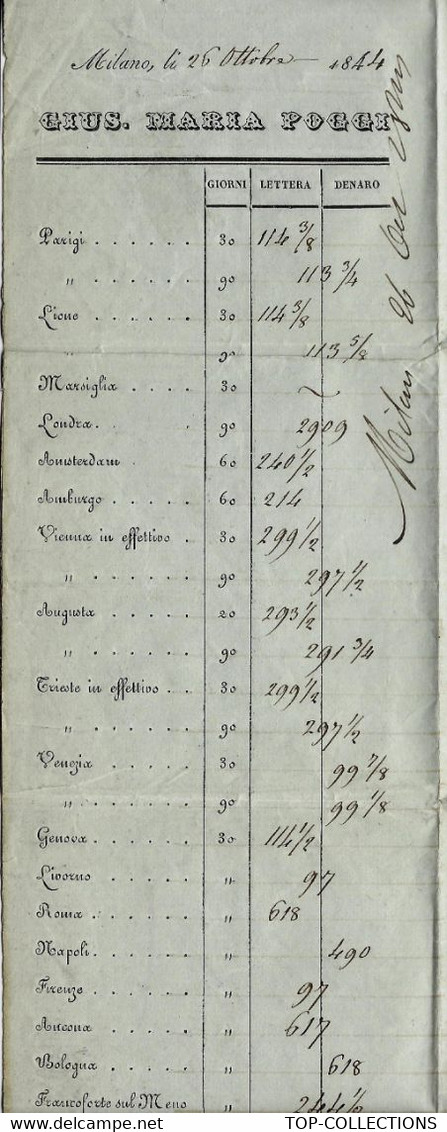 Milano, li 26 Ottobre 1844
GIUS. MARIA POGGI
GIORNI LETTERA DENARO
Parigi . . . . . . 30 114 3/8
" . . . . . . 90 113 3/4
Lione . . . . . . 30 114 3/8
" 90 113 5/8
Marsiglia . . . . 30 ~
Londra . . . . . 90 2909
Amsterdam . . 60 240 1/2
Amburgo . . . . . 60 214
Vienna in effettivo . 30 299 1/2
" . . . . . . 90 297 1/2
Augusta . . . . . 20 293 1/2
" . . . . . . 90 291 3/4
Trieste in effettivo . . 30 299 1/2
" . . . . . . 90 297 1/2
Venezia . . . . . 30 99 7/8
" . . . . . . 90 99 1/8
Genova . . . . . 30 114 1/2
Livorno . . . . . " 97
Roma . . . . . . " 618
Napoli . . . . . . " 490
Firenze . . . . . " 97
Ancona . . . . . " 617
Bologna . . . . . " 618
Francoforte sul Meno " 244 1/2
Milan 26 Oct
https://www.delcampe.net TOP-COLLECTIONS